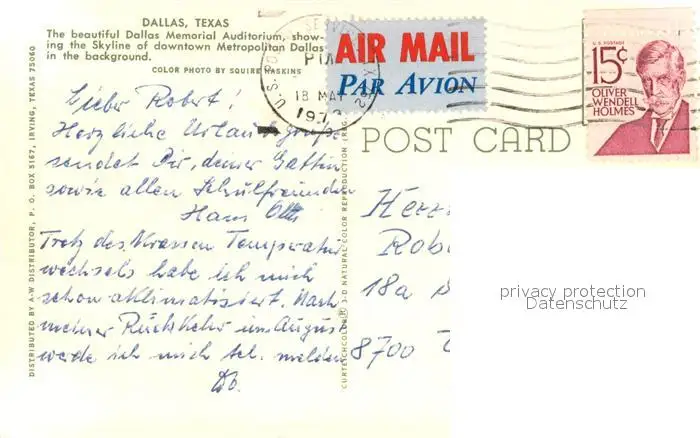 DALLAS, TEXAS
The beautiful Dallas Memorial Auditorium, show-
ing the Skyline of downtown Metropolitan Dallas
in the background.
COLOR PHOTO BY SQUIRE HASKINS
Lieber Robert!
Herzliche Urlaubsgrüße
sendet Dir, deiner Gattin
sowie allen Schulfreunden
Hans Otto
Trotz des krassen Temperatur
wechsels habe ich mich
schon aklimatisiert. Nach
meiner Rückkehr im August
werde ich mich tel. melden
DISTRIBUTED BY A-W DISTRIBUTOR, P. O. BOX 5167, IRVING, TEXAS 75060
CURTEICHCOLOR® 3-D NATURAL COLOR REPRODUCTION
AIR MAIL
PAR AVION
18 MAY
U.S. POSTAGE
15¢
OLIVER
WENDELL
HOLMES
POST CARD
Herrn
Rob
18a
8700
privacy protection
Datenschutz